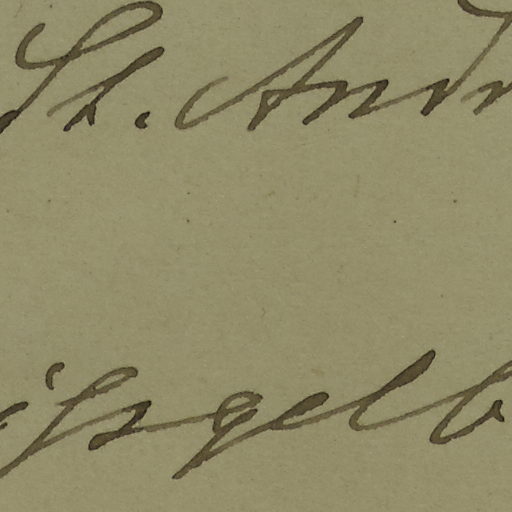 St. Andr
ißgelb